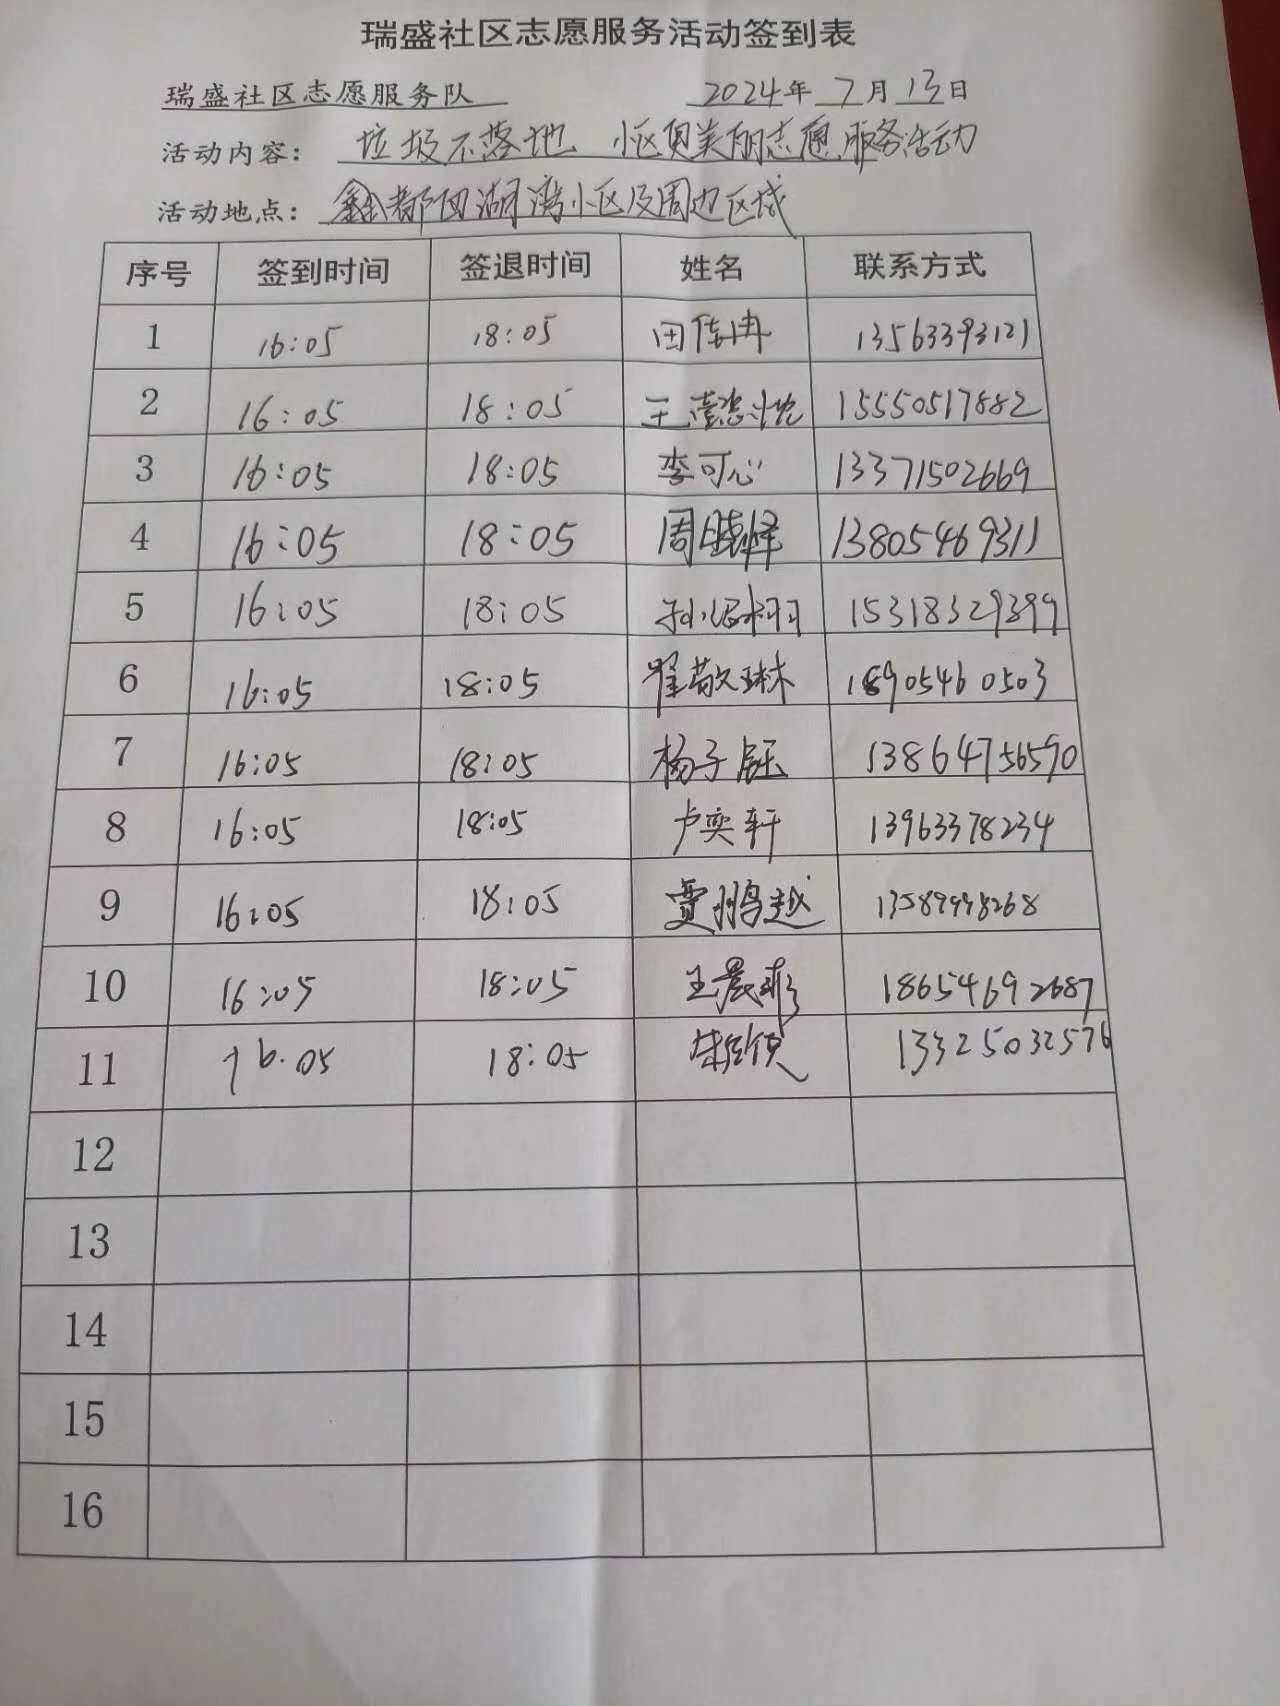 瑞盛社区志愿服务活动签到表
瑞盛社区志愿服务队 2024年 7月 13日
活动内容： 垃圾不落地 小区更美丽志愿服务活动
活动地点： 鑫都西湖湾小区及周边区域
序号 签到时间 签退时间 姓名 联系方式
1 16:05 18:05 田佳冉 13563393121
2 16:05 18:05 王 15550517882
3 16:05 18:05 李可心 13371502669
4 16:05 18:05 周晓怿 13805469311
5 16:05 18:05 15318329399
6 16:05 18:05 翟敬琳 18905460503
7 16:05 18:05 杨子钰 13864756590
8 16:05 18:05 卢奕轩 13963378234
9 16:05 18:05 贾鹏越 13589998268
10 16:05 18:05 王晨彤 18654692687
11 16:05 18:05 13325032576
12
13
14
15
16